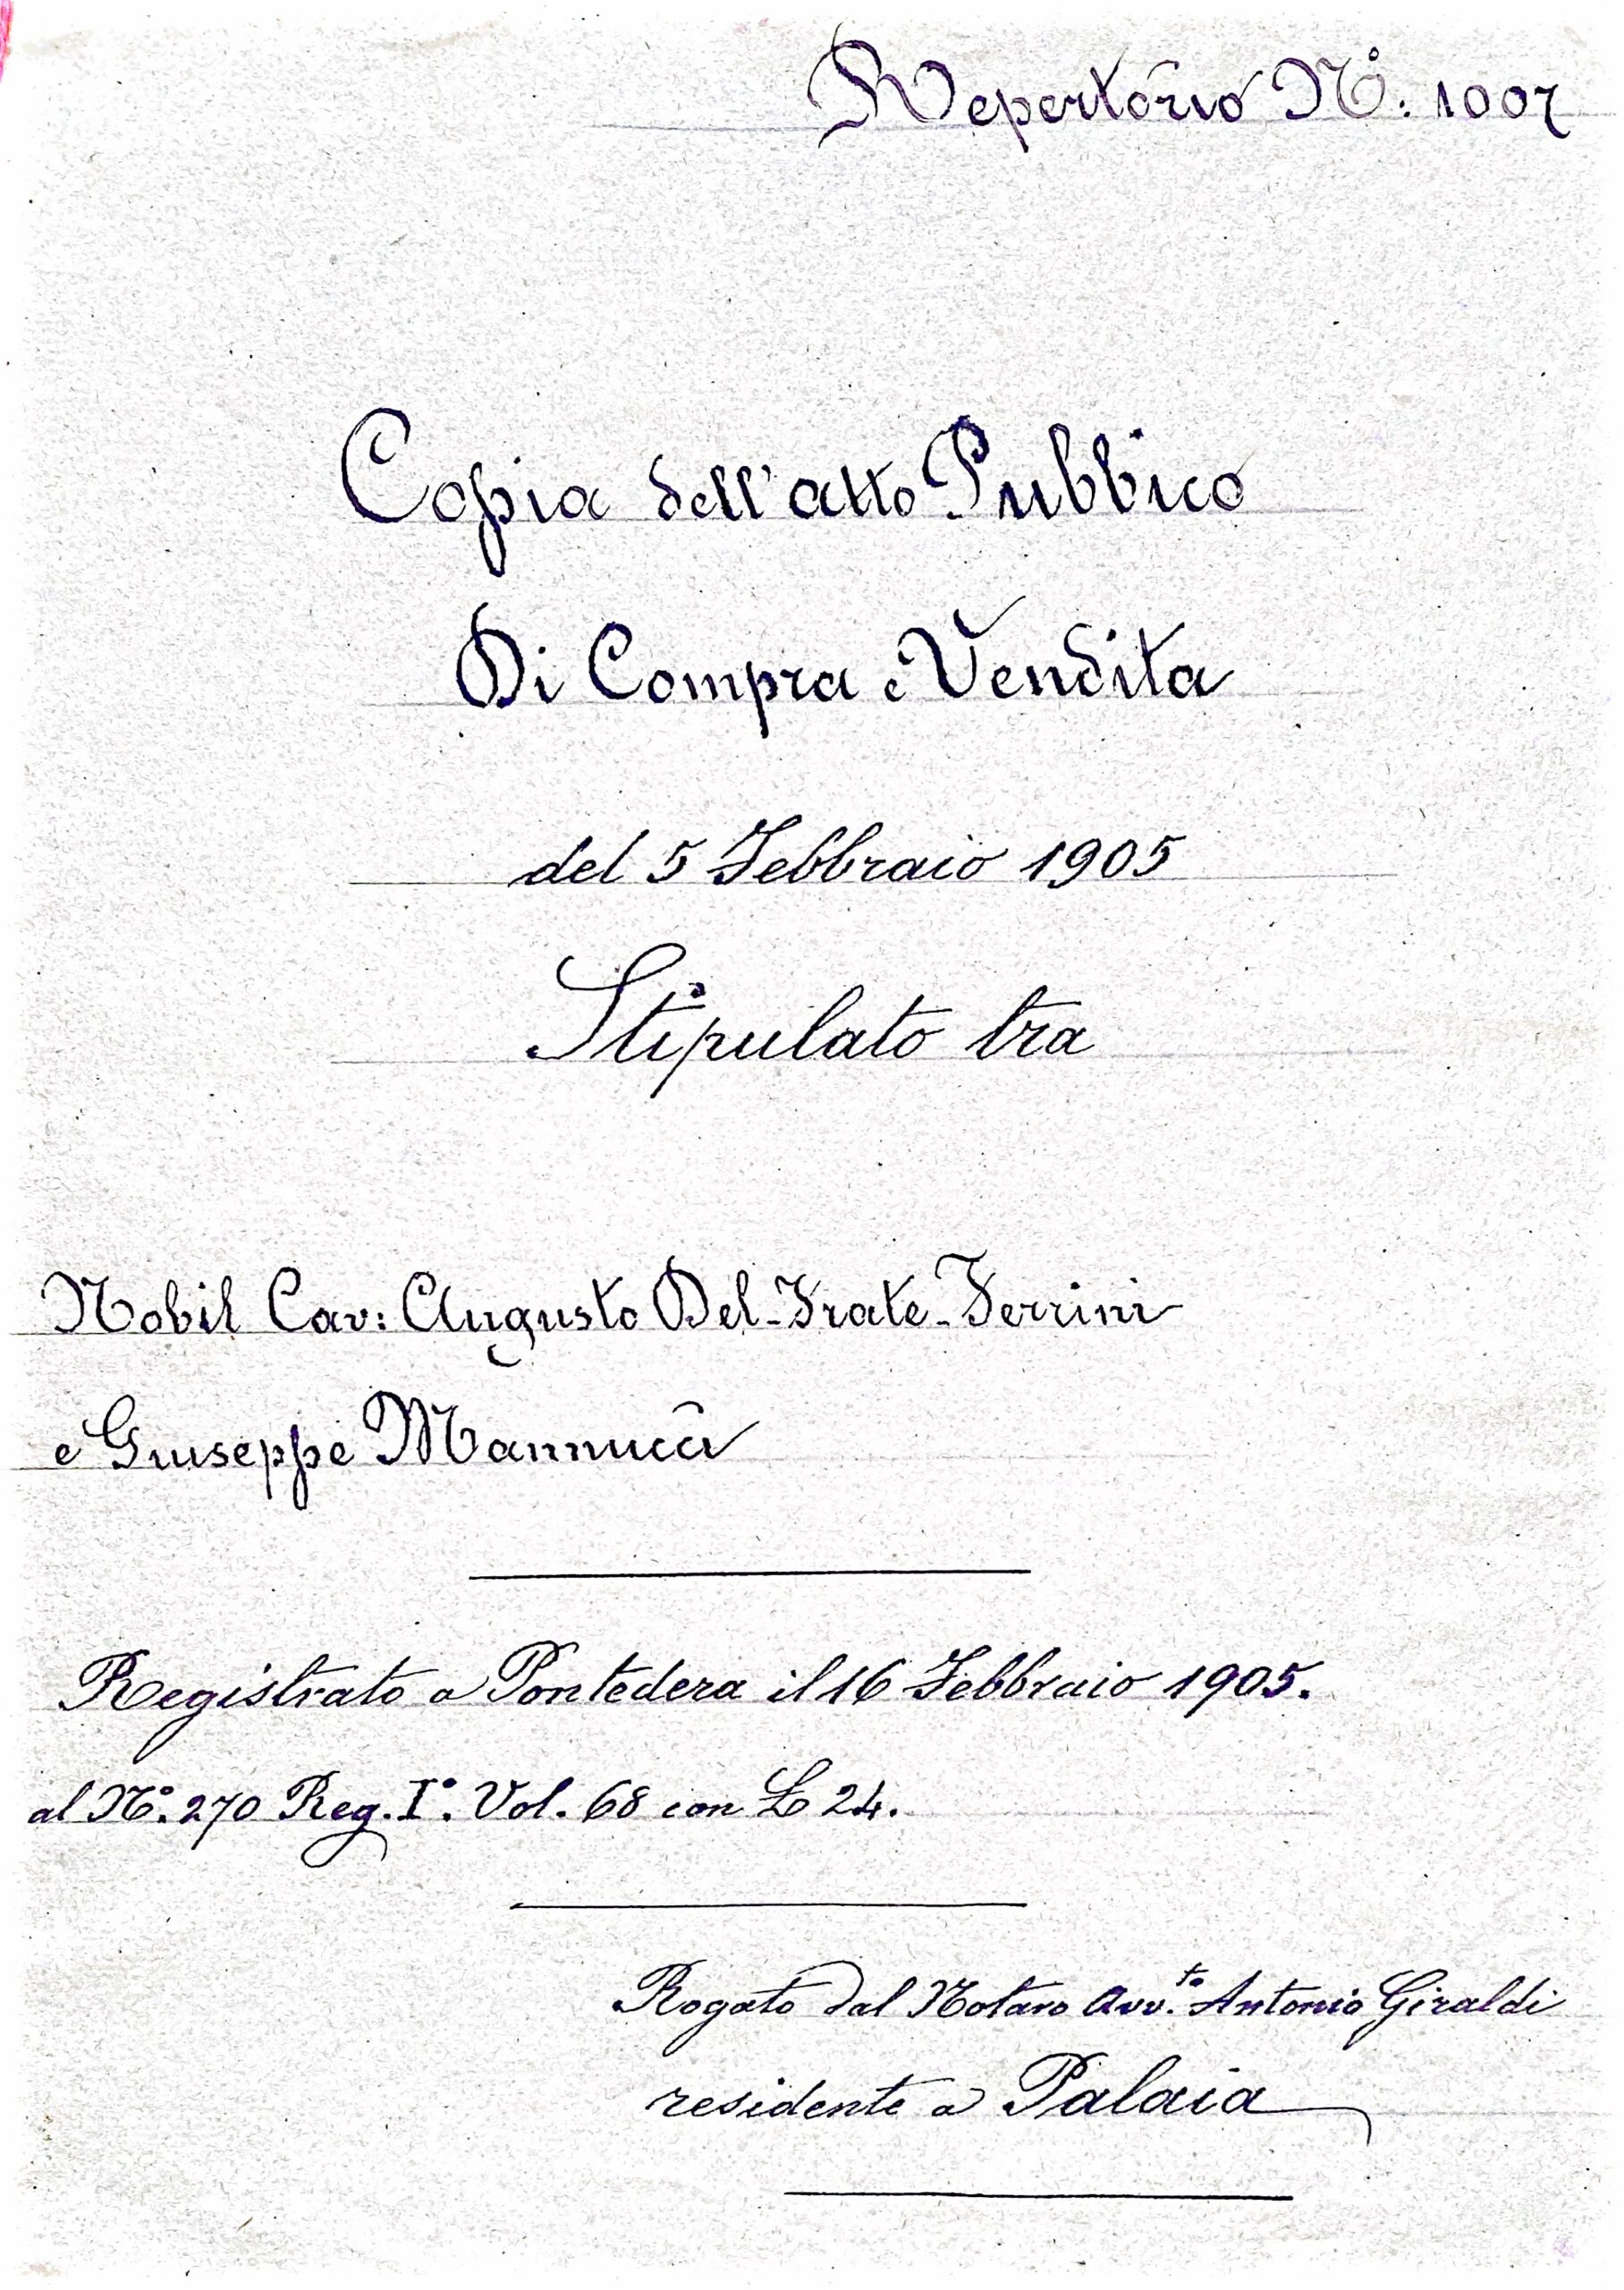 Repertorio N°: 1007
Copia dell'atto Pubblico
Di Compra e Vendita
del 5 Febbraio 1905
Stipulato tra
Nobil Cav: Augusto Del-Frate-Ferrini
e Giuseppe Mannucci
Registrato a Pontedera il 16 Febbraio 1905.
al N°. 270 Reg. I°. Vol. 68 con L 24.
Rogato dal Notaro Avv.to Antonio Giraldi
residente a Palaia